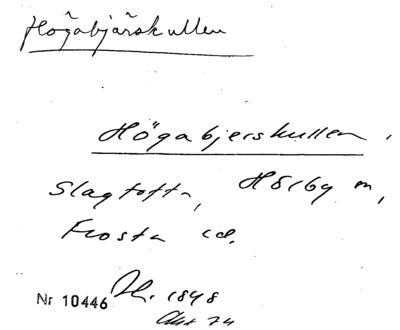 Högabjärskullen
Högabjerskullen,
Slagtofta, Hörby sn,
Frosta hd.
Nr 10446 1848
Akt 74